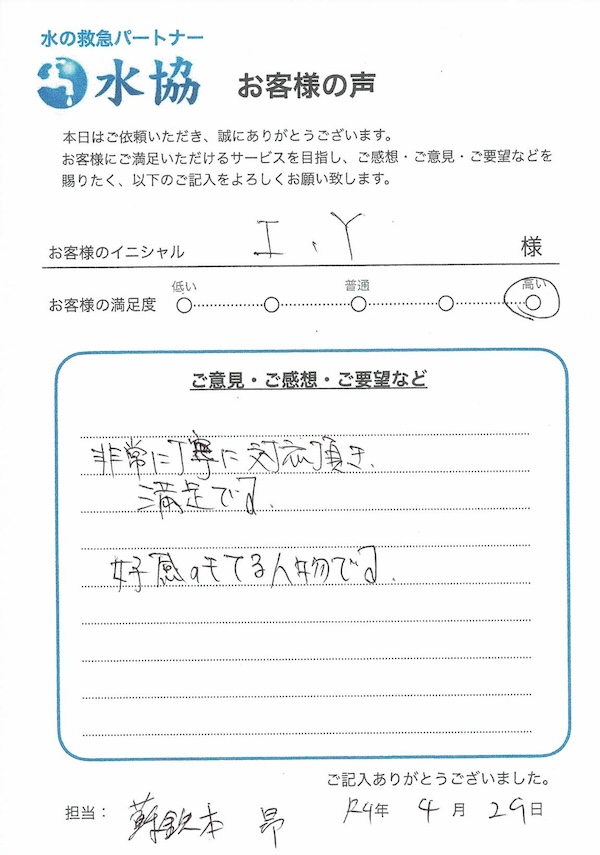 水の救急パートナー
水協 お客様の声
本日はご依頼いただき、誠にありがとうございます。
お客様にご満足いただけるサービスを目指し、ご感想・ご意見・ご要望などを
賜りたく、以下のご記入をよろしくお願い致します。
お客様のイニシャル I、Y 様
低い 普通 高い
お客様の満足度
ご意見・ご感想・ご要望など
非常に丁寧に対応頂き、
満足です。
好感のもてる人物です。
ご記入ありがとうございました。
担当： 本 昂 R4年 4月 29日